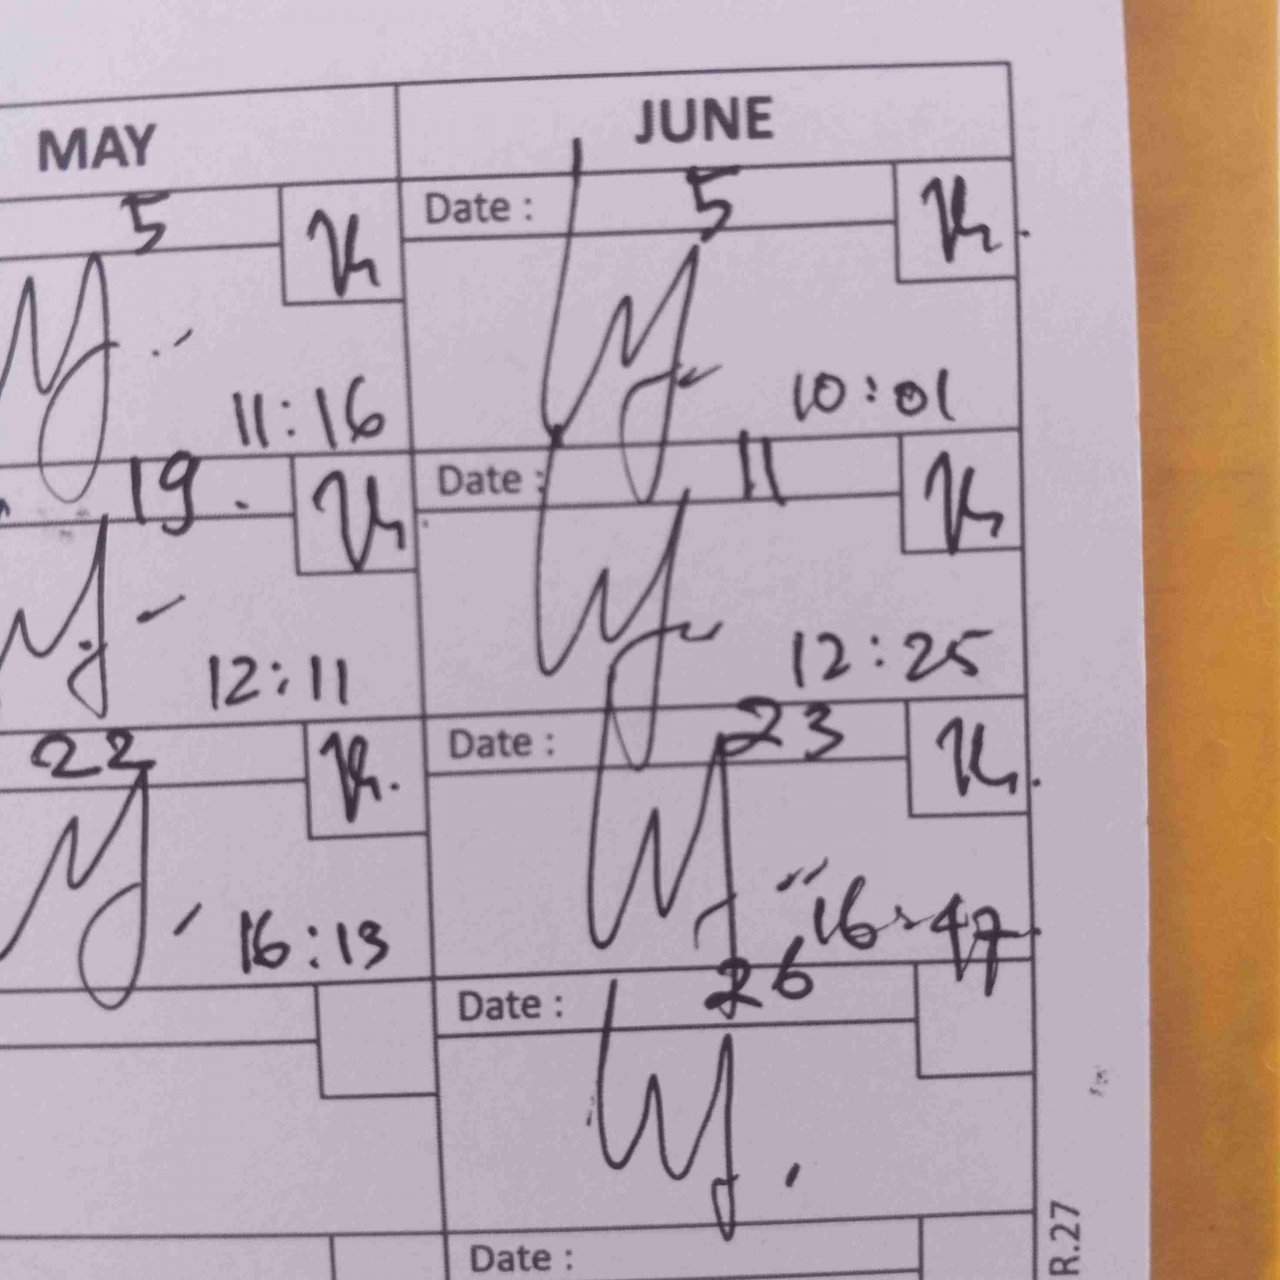 MAY JUNE
5 Date : 5
11:16 10:01
19. Date : 11
12:11 12:25
22 Date : 23
16:13 16:47
Date : 26
Date :
R.27